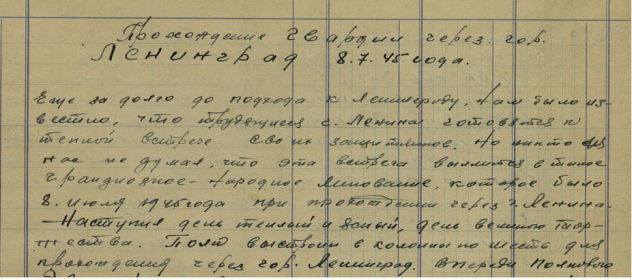 Прохождение Гвардии через гор.
Ленинград 8.7.45 года.
Еще за долго до подхода к Ленинграду, нам было из-
вестно, что трудящиеся г. Ленина готовятся к
теплой встрече своих защитников. Но никто из
нас не думал, что эта встреча выльется в такое
грандиозное народное ликование, которое было
8. июля 1945 года при прохождении через г. Ленина.
Наступил день теплый и ясный, день великого тор-
жества. Полк выстроен в колонны по шесть для
прохождения через гор. Ленинград. Впереди Полкового